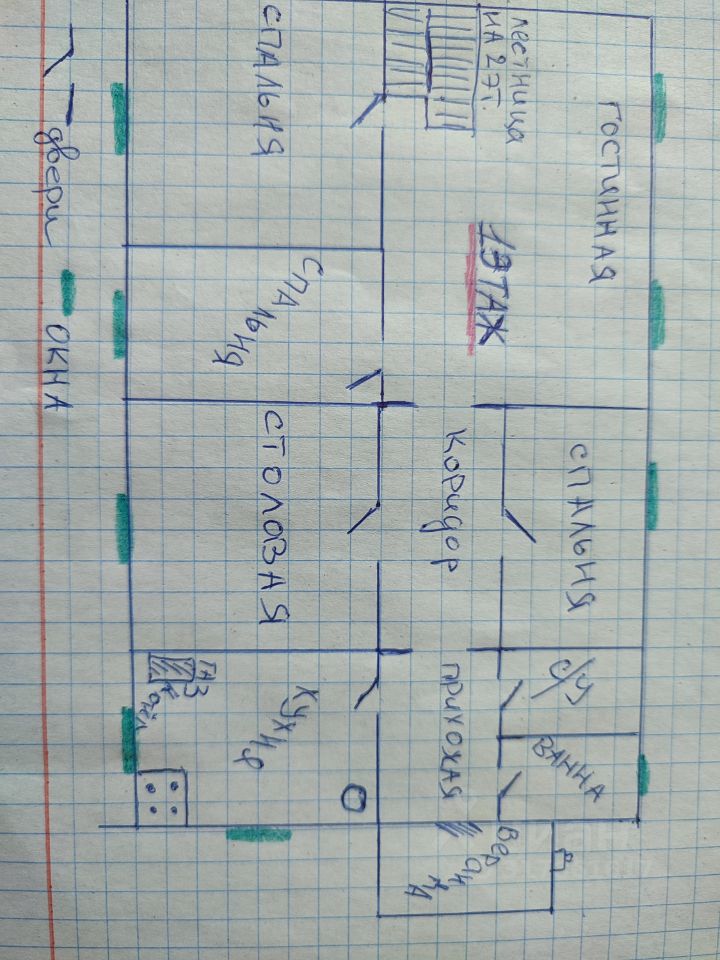 СПАЛЬНЯ
ЛЕСТНИЦА
НА 2 ЭТ.
ГОСТИННАЯ
1 ЭТАЖ
СПАЛЬНЯ
СТОЛОВАЯ
КОРИДОР
СПАЛЬНЯ
С/У
ВАННА
ПРИХОЖАЯ
КУХНЯ
ГАЗ
двери
ОКНА